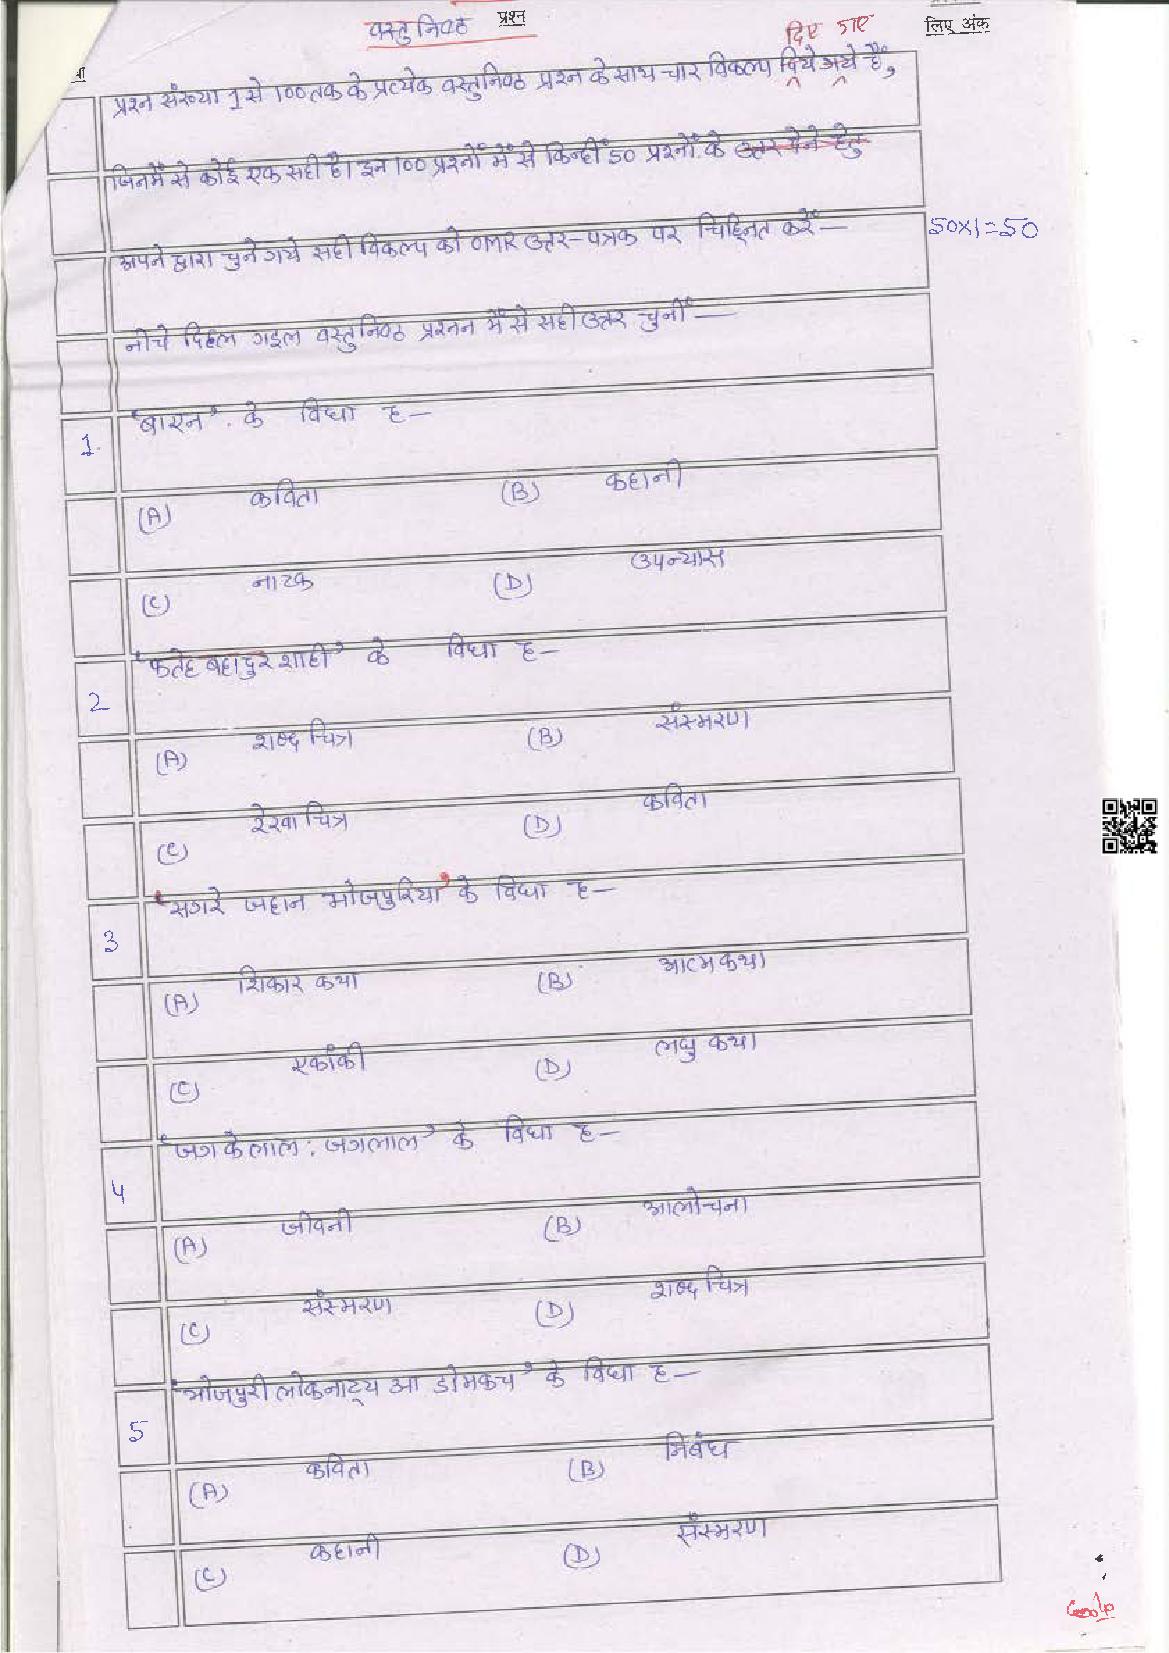 वस्तुनिष्ठ प्रश्न
दिए गए
लिए अंक
प्रश्न संख्या 1 से 100 तक के प्रत्येक वस्तुनिष्ठ प्रश्न के साथ चार विकल्प दिये गये हैं,
जिनमें से कोई एक सही है। इन 100 प्रश्नों में से किन्हीं 50 प्रश्नों के उत्तर देने हेतु
अपने द्वारा चुने गये सही विकल्प को OMR उत्तर-पत्रक पर चिह्नित करें— 50x1=50
नीचे दिहल गइल वस्तुनिष्ठ प्रश्नन में से सही उत्तर चुनीं—
1. 'बाएन' के विधा ह—
(A) कविता (B) कहानी
(C) नाटक (D) उपन्यास
2 'फतेह बहादुर शाही' के विधा ह—
(A) शब्द चित्र (B) संस्मरण
(C) रेखा चित्र (D) कविता
3 'सगरे जहान भोजपुरिया' के विधा ह—
(A) शिकार कथा (B) आत्मकथा
(C) एकांकी (D) लघु कथा
4 'जग के लाल : जगलाल' के विधा ह—
(A) जीवनी (B) आलोचना
(C) संस्मरण (D) शब्द चित्र
5 'भोजपुरी लोकनाट्य आ डोमकच' के विधा ह—
(A) कविता (B) निबंध
(C) कहानी (D) संस्मरण